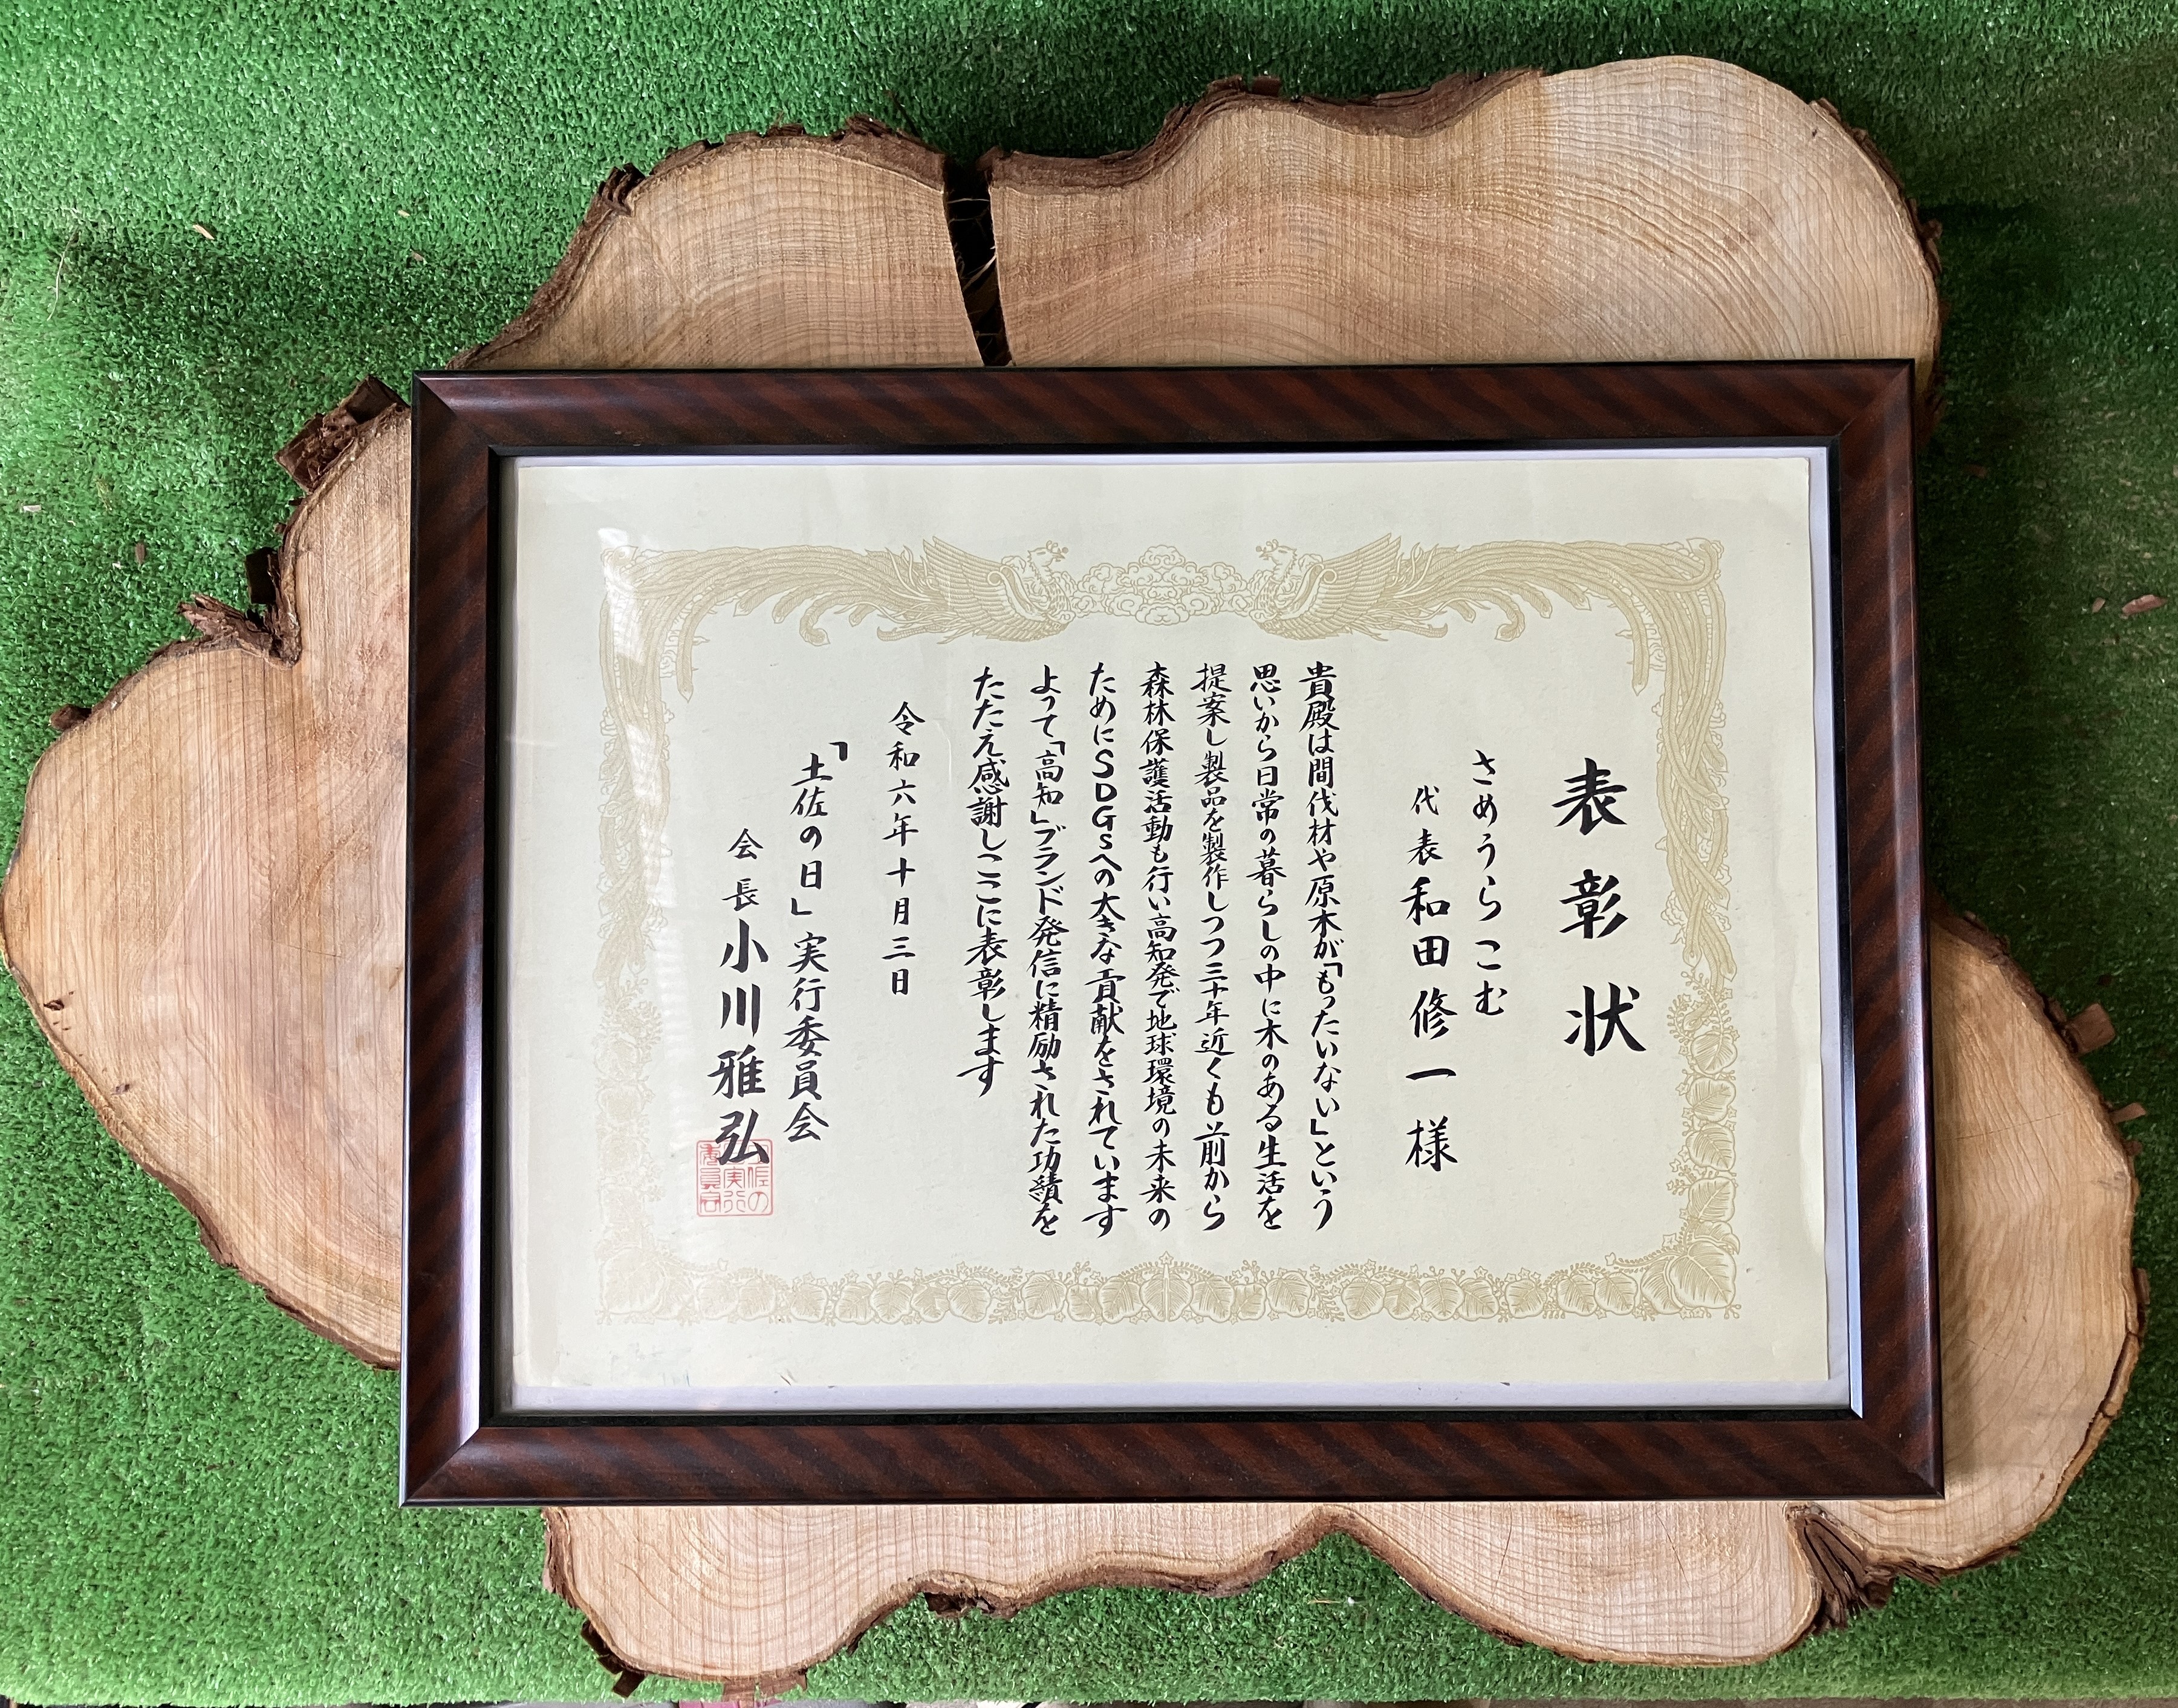 表彰状
さめうらこむ
代表 和田修一様
貴殿は間伐材や原木が「もったいない」という
思いから日常の暮らしの中に木のある生活を
提案し製品を製作しつつ三十年近くも前から
森林保護活動も行い高知発で地球環境の未来の
ためにSDGsへの大きな貢献をされています
よって「高知」ブランド発信に精励された功績を
たたえ感謝しここに表彰します
令和六年十月三日
「土佐の日」実行委員会
会長 小川雅弘